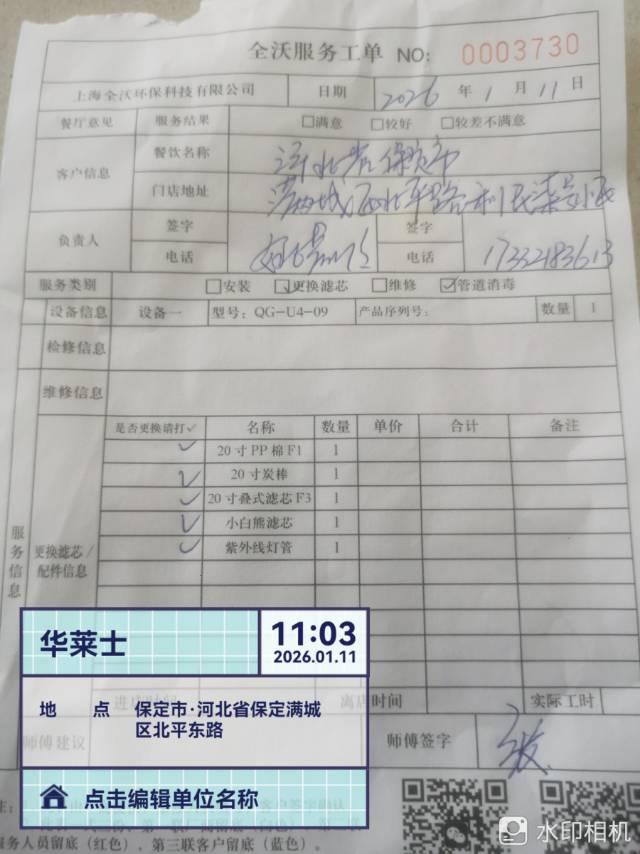 全沃服务工单 NO: 0003730
上海全沃环保科技有限公司 日期 2026 年 1 月 11 日
餐厅意见 服务结果 □满意 □较好 □较差不满意
客户信息 餐饮名称 河北省保定市
门店地址 满城 北平 路
负责人 签字 签字
电话 电话 17332183613
服务类别 □安装 ☑更换滤芯 □维修 ☑管道消毒
设备信息 设备一 型号: QG-U4-09 产品序列号: 数量 1
检修信息
维修信息
是否更换请打✓ 名称 数量 单价 合计 备注
✓ 20寸PP棉F1 1
✓ 20寸炭棒 1
✓ 20寸叠式滤芯F3 1
✓ 小白熊滤芯 1
✓ 紫外线灯管 1
服务信息 更换滤芯/配件信息
华莱士 11:03
2026.01.11
进店时间 离店时间 实际工时
地 点 保定市·河北省保定满城
区北平东路
师傅建议 师傅签字
点击编辑单位名称
务人员留底（红色）、第三联客户留底（蓝色）。
水印相机